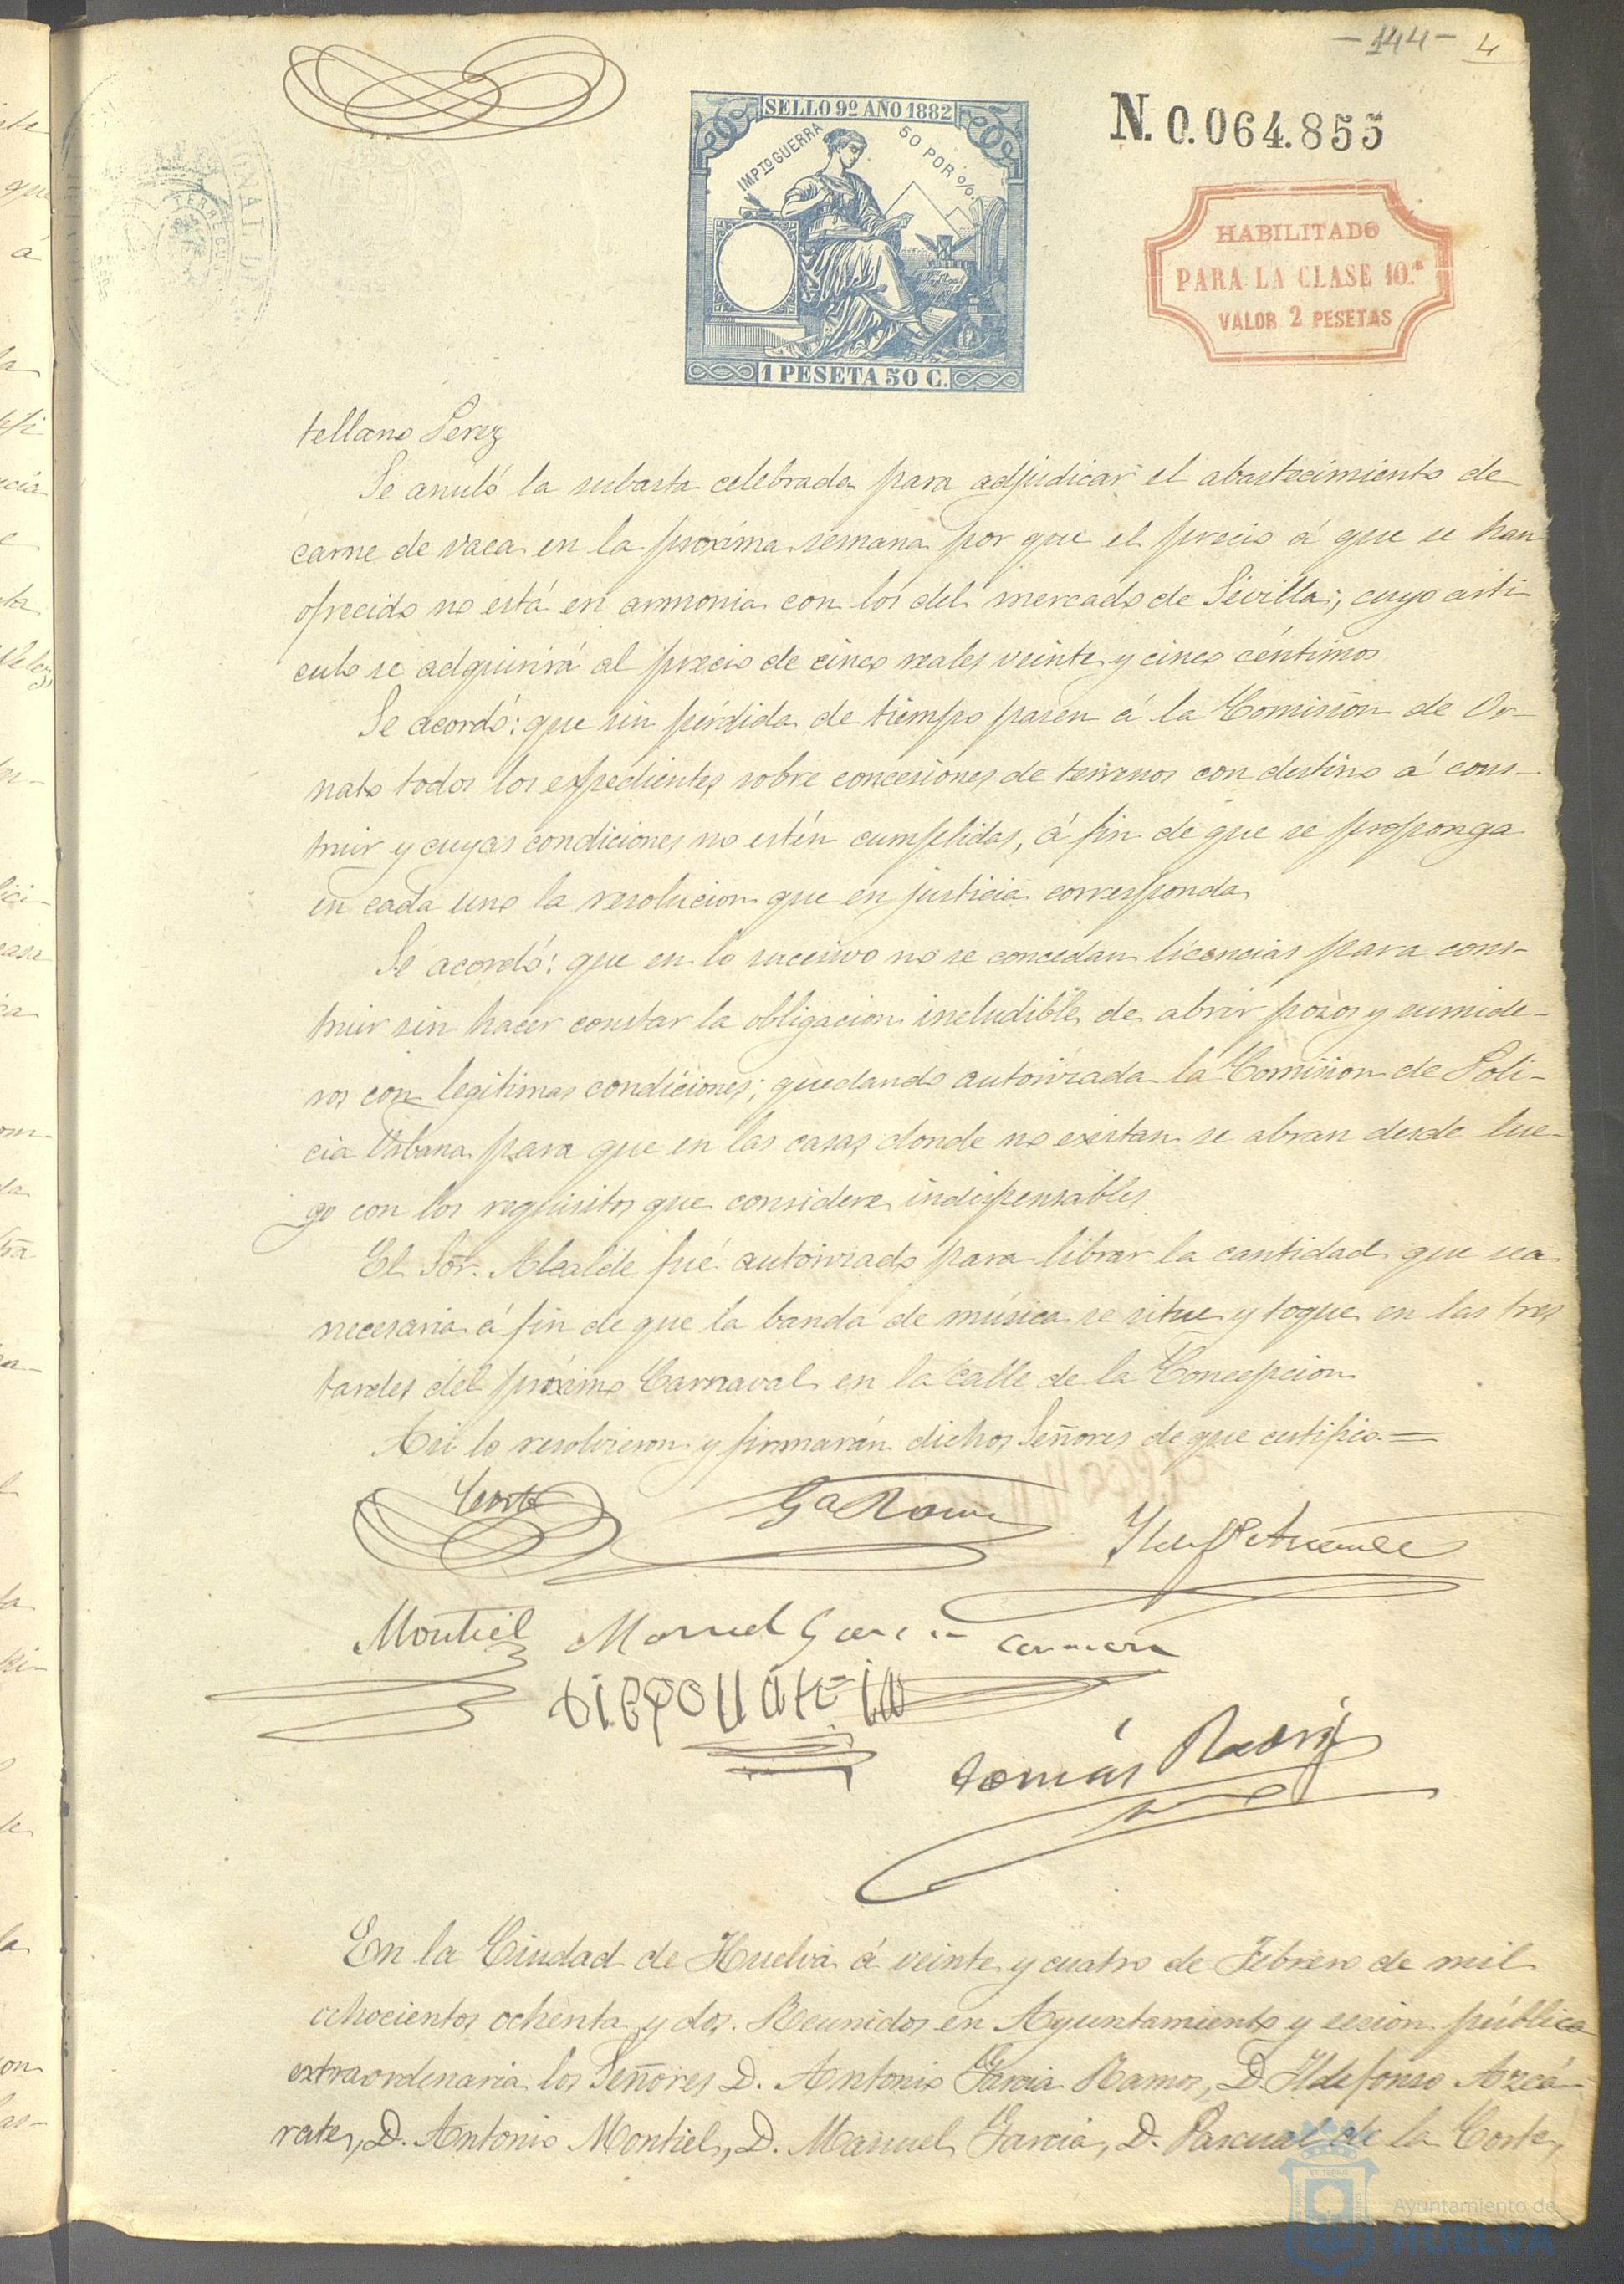 -144- 4
SELLO 9º AÑO 1882
IMPTO GUERRA 50 POR %
1 PESETA 50 C.
N. 0.064.855
HABILITADO
PARA LA CLASE 10.ª
VALOR 2 PESETAS
tellano Perez
Se anuló la subasta celebrada para adjudicar el abastecimiento de
carne de vaca en la proxíma semana por que el precio á que se han
ofrecido no está en armonia con los del mercado de Sevilla; cuyo arti
culo se adquirirá al precio de cinco reales veinte y cinco céntimos
Se acordó: que sin pérdida de tiempo pasen á la Comision de Or-
nato todos los expedientes sobre concesiones de terrenos con destino á cons-
truir y cuyas condiciones no estén cumplidas, á fin de que se proponga
en cada uno la resolucion que en justicia corresponda
Se acordó: que en lo sucesivo no se concedan licencias para cons-
truir sin hacer constar la obligacion includible de abrir pozos y sumide-
ros con legitimas condiciones; quedando autorizada la Comision de Poli-
cia Urbana para que en las casas donde no existan se abran desde lue-
go con los requisitos que considere indispensables.
El Sor. Alcalde fué autorizado para librar la cantidad que sea
necesaria á fin de que la banda de música se situe y toque en las tres
tardes del próximo Carnaval en la calle de la Concepcion
Asi lo resolvieron y firmarán dichos Señores de que certifico =
Corte Ga Ramos
Montiel Manuel Garcia
Diego Garcia
Tomás Rodrig
En la Ciudad de Huelva á veinte y cuatro de Febrero de mil
ochocientos ochenta y dos. Reunidos en Ayuntamiento y sesion pública
extraordinaria los Señores D. Antonio Garcia Ramos, D. Ildefonso Azcá-
rate, D. Antonio Montiel, D. Manuel Garcia, D. Pascual de la Corte,
Ayuntamiento de
HUELVA